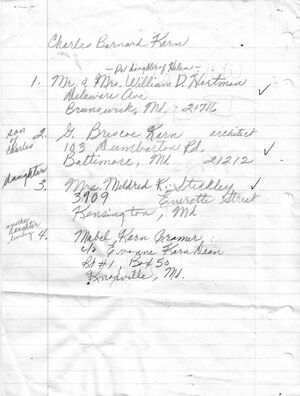 Charles Barnard Karn
- Dau daughter of Helen -
1. Mr. & Mrs. William D. Hartman
Delaware Ave ✓
Brunswick, Md. 21716
son of Charles 2. G. Briscoe Karn architect
193 Dumbarton Rd. ✓
Baltimore, Md 21212
daughter
3. Mrs. Mildred K. Stickley ✓
3909 Everette Street
Kensington, Md
daughter
living 4. Mabel Karn Cramer
c/o Evonne Karn Dean
Rt #1, Box 50
Knoxville, Md.